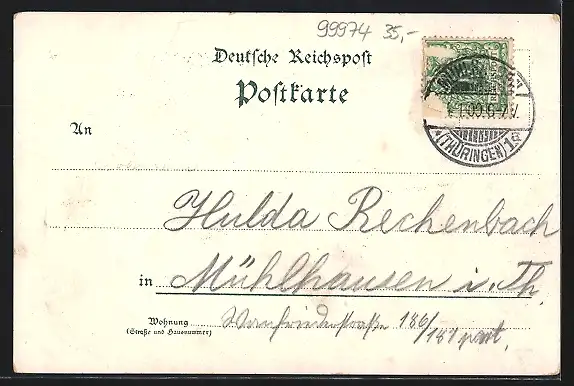 99974 35,-
Deutsche Reichspost
Postkarte
An
Hulda Rechenbach
in Mühlhausen i. Th.
Wohnung
(Straße und Hausnummer)
Wanfriederstraße 186/
187 part.
(THÜRINGEN) 1a